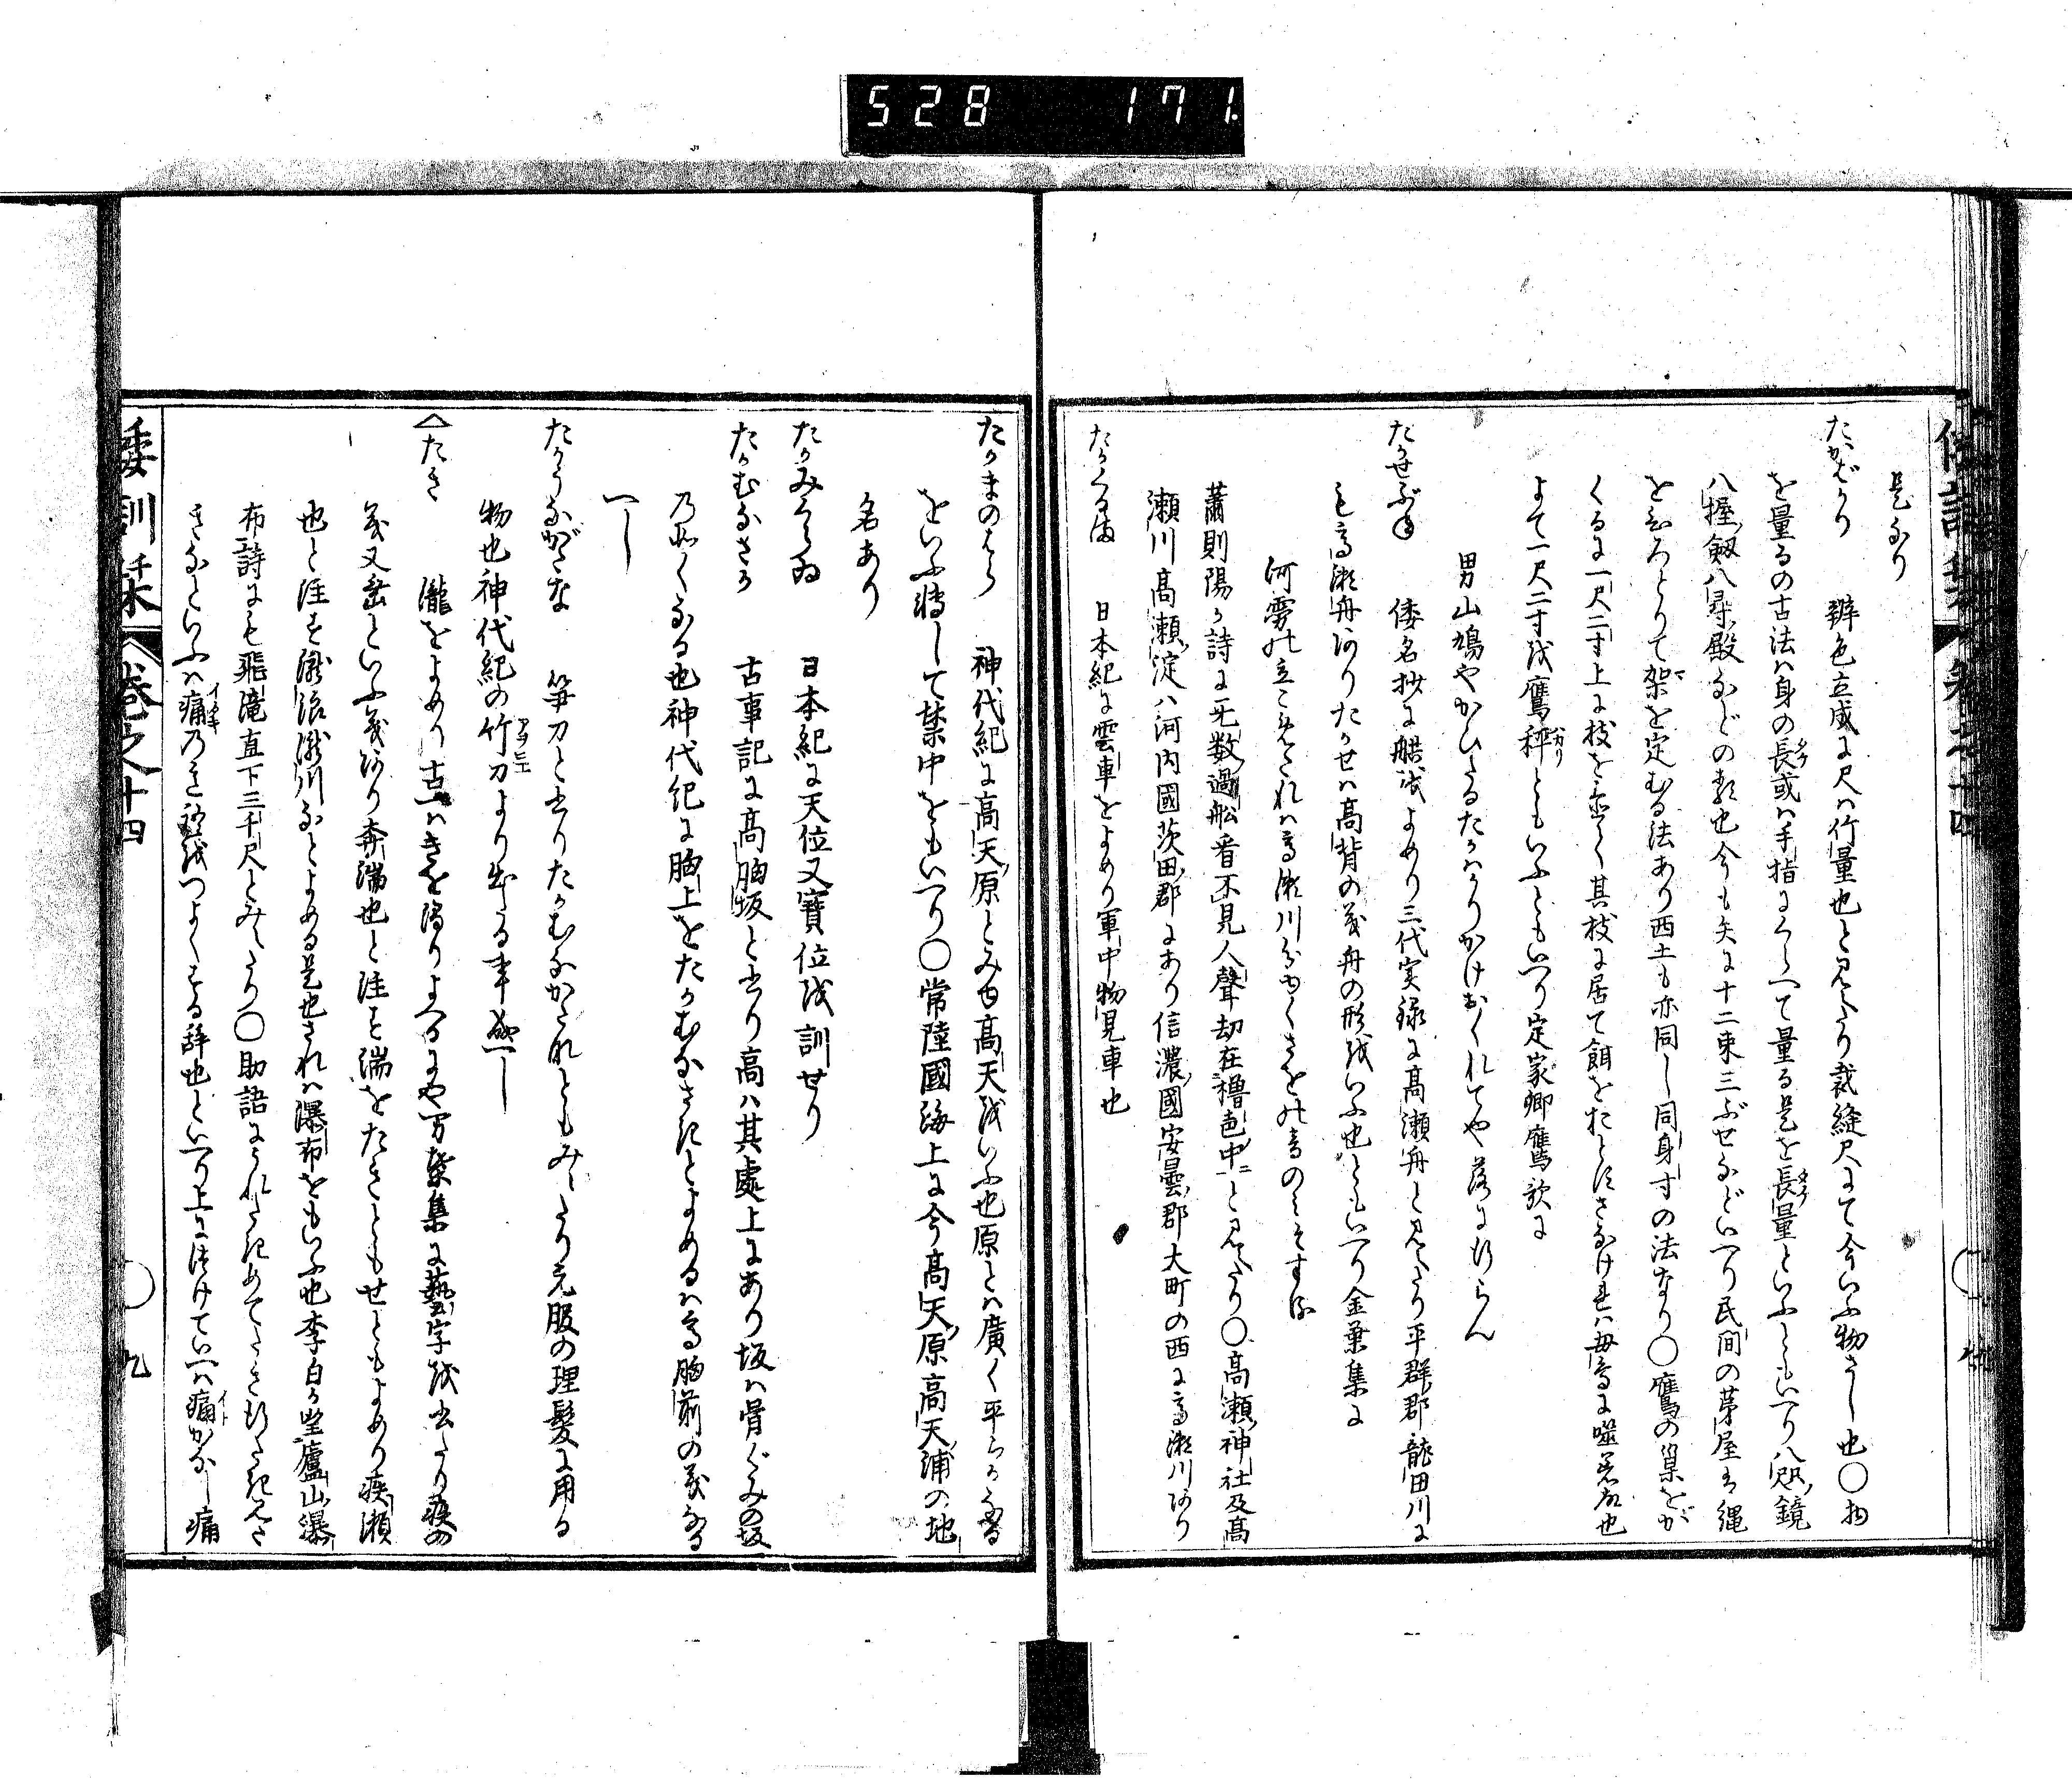 528 171.
是なり
たかばかり 辨色立成に尺ハ竹量也と見えたり裁縫尺にて今いふ物さし也〇物
を量るの古法ハ身の長或ハ手指にくらへて量る是を長量といふともいへり八咫鏡
八握劔八尋殿などの類也今も矢に十二束三ぶせなどいへり民間の茅屋も縄
をもとりて架を定むる法あり西土も亦同し同身寸の法なり〇鷹の巣をが
くるに一尺二寸上に枝を置く其枝に居て餌をおとすさなけれハ母鳥に噬るゝ故也
よて一尺二寸を鷹秤ともいふともいへり定家卿鷹歌に
男山鳩やかひたるたかはかりかけおくれてや落に行らん
たかせぶね 倭名抄に艜をよめり三代実録に高瀬舟と見えたり平群郡龍田川に
も高瀬舟ありたかせハ高背の義舟の形をいふ也ともいへり金葉集に
河霧の立こめつれハ高瀬川分ゆくさをの音のみそする
蕭則陽か詩に无数過舩看不見人聲却在櫓邑中と見えたり〇高瀬神社及高
瀬川高瀬淀ハ河内國茨田郡にあり信濃國安曇郡大町の西に高瀬川あり
たかくるま 日本紀に雲車をよめり軍中物見車也
たかまのはら 神代紀に高天原とみゆ高天をいふ也原とハ廣く平らかなる
をいふ轉して禁中をもいへり〇常陸國海上に今高天原高天浦の地
名あり
たかみくらゐ 日本紀に天位又寶位を訓せり
たかむなさか 古事記に高胸坂と書り高ハ其處上にあり坂ハ骨ぐみの坂
乃如くなる也神代紀に胸上をたかむなさかとよめるハ高胸前の義なる
へし
たかうながたな 笋刀と書りたかむなかたなともみえたり元服の理髪に用る
物也神代紀の竹刀より出たる事成へし
たき 瀧をよめり古ハきを濁りよへるにや万葉集に藝字を書たり疾の
義又湍といふ義あり奔湍也と注す湍をたきともせともよめり疾瀬
也と注す瀧浪瀧川なとよめる是也されハ瀑布をもいふ也李白か望廬山瀑
布詩にも飛滝直下三千尺とみえたり〇助語にうれたきめてたき行たき見た
きなといふハ痛乃き を つよくする辞也といへり上につけていへハ痛かなし痛
倭訓栞 巻之十四 九